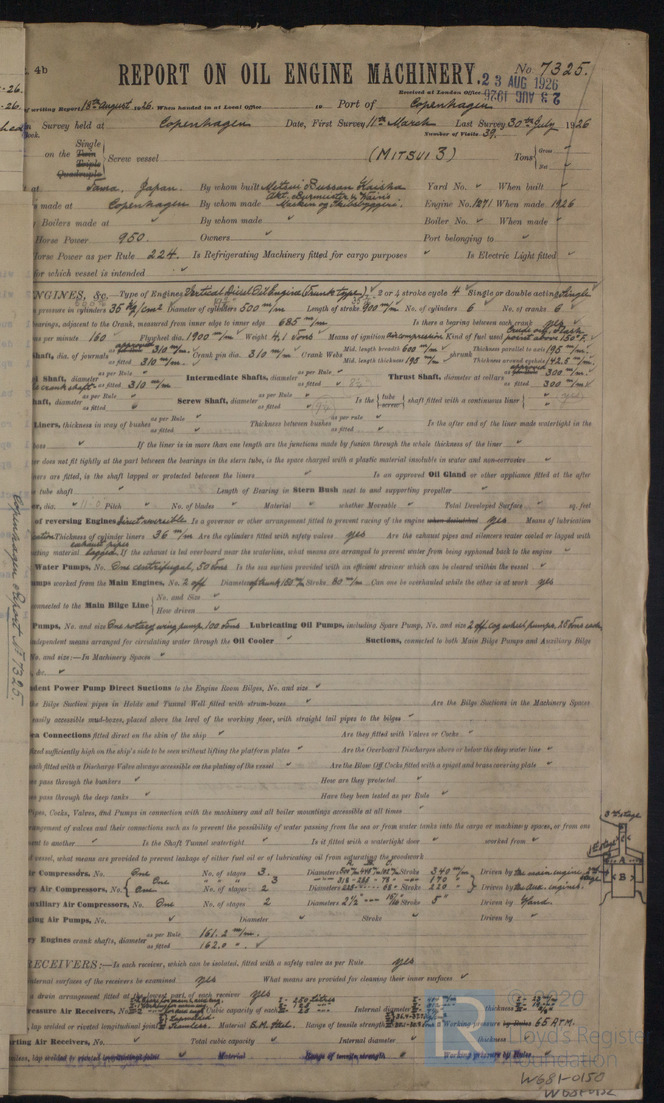 4b
REPORT ON OIL ENGINE MACHINERY.
No 7325.
Received at London Office 23 AUG 1926
of writing Report 18th August 1926. When handed in at Local Office 19 Port of Copenhagen
Survey held at Copenhagen Date, First Survey 11th March Last Survey 30th July 1926
Number of Visits 39.
on the Single Twin Triple Quadruple Screw vessel (MITSUI 3) Tons Gross Net
at Tama, Japan. By whom built Mitsui Bussan Kaisha Yard No. When built
s made at Copenhagen By whom made Akt. Burmeister & Wain's Maskin og Skibsbyggeri. Engine No. 1271 When made 1926
Boilers made at By whom made Boiler No. When made
Horse Power 950. Owners Port belonging to
Horse Power as per Rule 224. Is Refrigerating Machinery fitted for cargo purposes Is Electric Light fitted
for which vessel is intended
ENGINES, &c. Type of Engines Vertical Diesel Oil Engine (Trunk type) 2 or 4 stroke cycle 4 Single or double acting Single
pressure in cylinders 35 kg/cm2 Diameter of cylinders 500 m/m Length of stroke 900 m/m No. of cylinders 6 No. of cranks 6
bearings, adjacent to the Crank, measured from inner edge to inner edge 685 m/m. Is there a bearing between each crank yes
per minute 160 Flywheel dia. 1900 m/m Weight 4.1 tons Means of ignition compression Kind of fuel used Crude oil, flash point above 150° F.
Shaft, dia. of journals as approved 310 m/m. as fitted 310 m/m. Crank pin dia. 310 m/m Crank Webs Mid. length breadth 600 m/m Mid. length thickness 195 m/m shrunk Thickness parallel to axis 195 m/m. Thickness around eyehole 142.5 m/m.
Shaft, diameter as per Rule as fitted 310 m/m Intermediate Shafts, diameter as per Rule as fitted Thrust Shaft, diameter at collars as approved 300 m/m. as fitted 300 m/m.
Shaft, diameter as per Rule as fitted Screw Shaft, diameter as per Rule as fitted Is the tube screw shaft fitted with a continuous liner
Liners, thickness in way of bushes as per Rule as fitted Thickness between bushes as per rule as fitted Is the after end of the liner made watertight in the
boss If the liner is in more than one length are the junctions made by fusion through the whole thickness of the liner
er does not fit tightly at the part between the bearings in the stern tube, is the space charged with a plastic material insoluble in water and non-corrosive
ners are fitted, is the shaft lapped or protected between the liners Is an approved Oil Gland or other appliance fitted at the after
tube shaft Length of Bearing in Stern Bush next to and supporting propeller
er, dia. Pitch No. of blades Material whether Moveable Total Developed Surface sq. feet
of reversing Engines Direct reversible Is a governor or other arrangement fitted to prevent racing of the engine when declutched yes Means of lubrication
Thickness of cylinder liners 36 m/m Are the cylinders fitted with safety valves yes Are the exhaust pipes and silencers water cooled or lagged with
ting material exhaust pipes lagged If the exhaust is led overboard near the waterline, what means are arranged to prevent water from being syphoned back to the engine
Water Pumps, No. One centrifugal, 50 tons Is the sea suction provided with an efficient strainer which can be cleared within the vessel
umps worked from the Main Engines, No. 2 off Diameter of trunk 150 m/m Stroke 80 m/m Can one be overhauled while the other is at work yes
connected to the Main Bilge Line No. and Size How driven
Pumps, No. and size One rotary wing pump 100 tons Lubricating Oil Pumps, including Spare Pump, No. and size 2 off cog wheel pumps, 28 tons each
independent means arranged for circulating water through the Oil Cooler Suctions, connected to both Main Bilge Pumps and Auxiliary Bilge
No. and size:—In Machinery Spaces
&c.
dent Power Pump Direct Suctions to the Engine Room Bilges, No. and size
the Bilge Suction pipes in Holds and Tunnel Well fitted with strum-boxes Are the Bilge Suctions in the Machinery Spaces
easily accessible mud-boxes, placed above the level of the working floor, with straight tail pipes to the bilges
ea Connections fitted direct on the skin of the ship Are they fitted with Valves or Cocks
fixed sufficiently high on the ship's side to be seen without lifting the platform plates Are the Overboard Discharges above or below the deep water line
each fitted with a Discharge Valve always accessible on the plating of the vessel Are the Blow Off Cocks fitted with a spigot and brass covering plate
es pass through the bunkers How are they protected
es pass through the deep tanks Have they been tested as per Rule
Pipes, Cocks, Valves, and Pumps in connection with the machinery and all boiler mountings accessible at all times
rangement of valves and their connections such as to prevent the possibility of water passing from the sea or from water tanks into the cargo or machinery spaces, or from one
ment to another Is the Shaft Tunnel watertight Is it fitted with a watertight door worked from
vessel, what means are provided to prevent leakage of either fuel oil or of lubricating oil from saturating the woodwork
A. B. C.
Air Compressors, No. One No. of stages 3. Diameters Stroke 340 m/m Driven by the main engine
One 3 170
ry Air Compressors, No. One No. of stages 2 Diameters Stroke 220 Driven by the aux. engines.
uxiliary Air Compressors, No. One No. of stages 2 Diameters 2½" Stroke 5" Driven by Hand.
ging Air Pumps, No. Diameter Stroke Driven by
ry Engines crank shafts, diameter as per Rule 161.2 m/m. as fitted 162.0
RECEIVERS:—Is each receiver, which can be isolated, fitted with a safety valve as per Rule yes
internal surfaces of the receivers be examined yes What means are provided for cleaning their inner surfaces
a drain arrangement fitted at the lowest part of each receiver yes
ressure Air Receivers, No. Cubic capacity of each Internal diameter thickness
lap welded or riveted longitudinal joint Seamless. Material S.M. Steel. Range of tensile strength Working pressure by Rules 65 ATM.
rting Air Receivers, No. Total cubic capacity Internal diameter thickness
mless, lap welded or riveted longitudinal joint Material Range of tensile strength Working pressure by Rules
Copenhagen Report No 7325.
3rd stage
A
B
C
© 2020
Lloyd's Register
Foundation
W681-0150
W681-0152